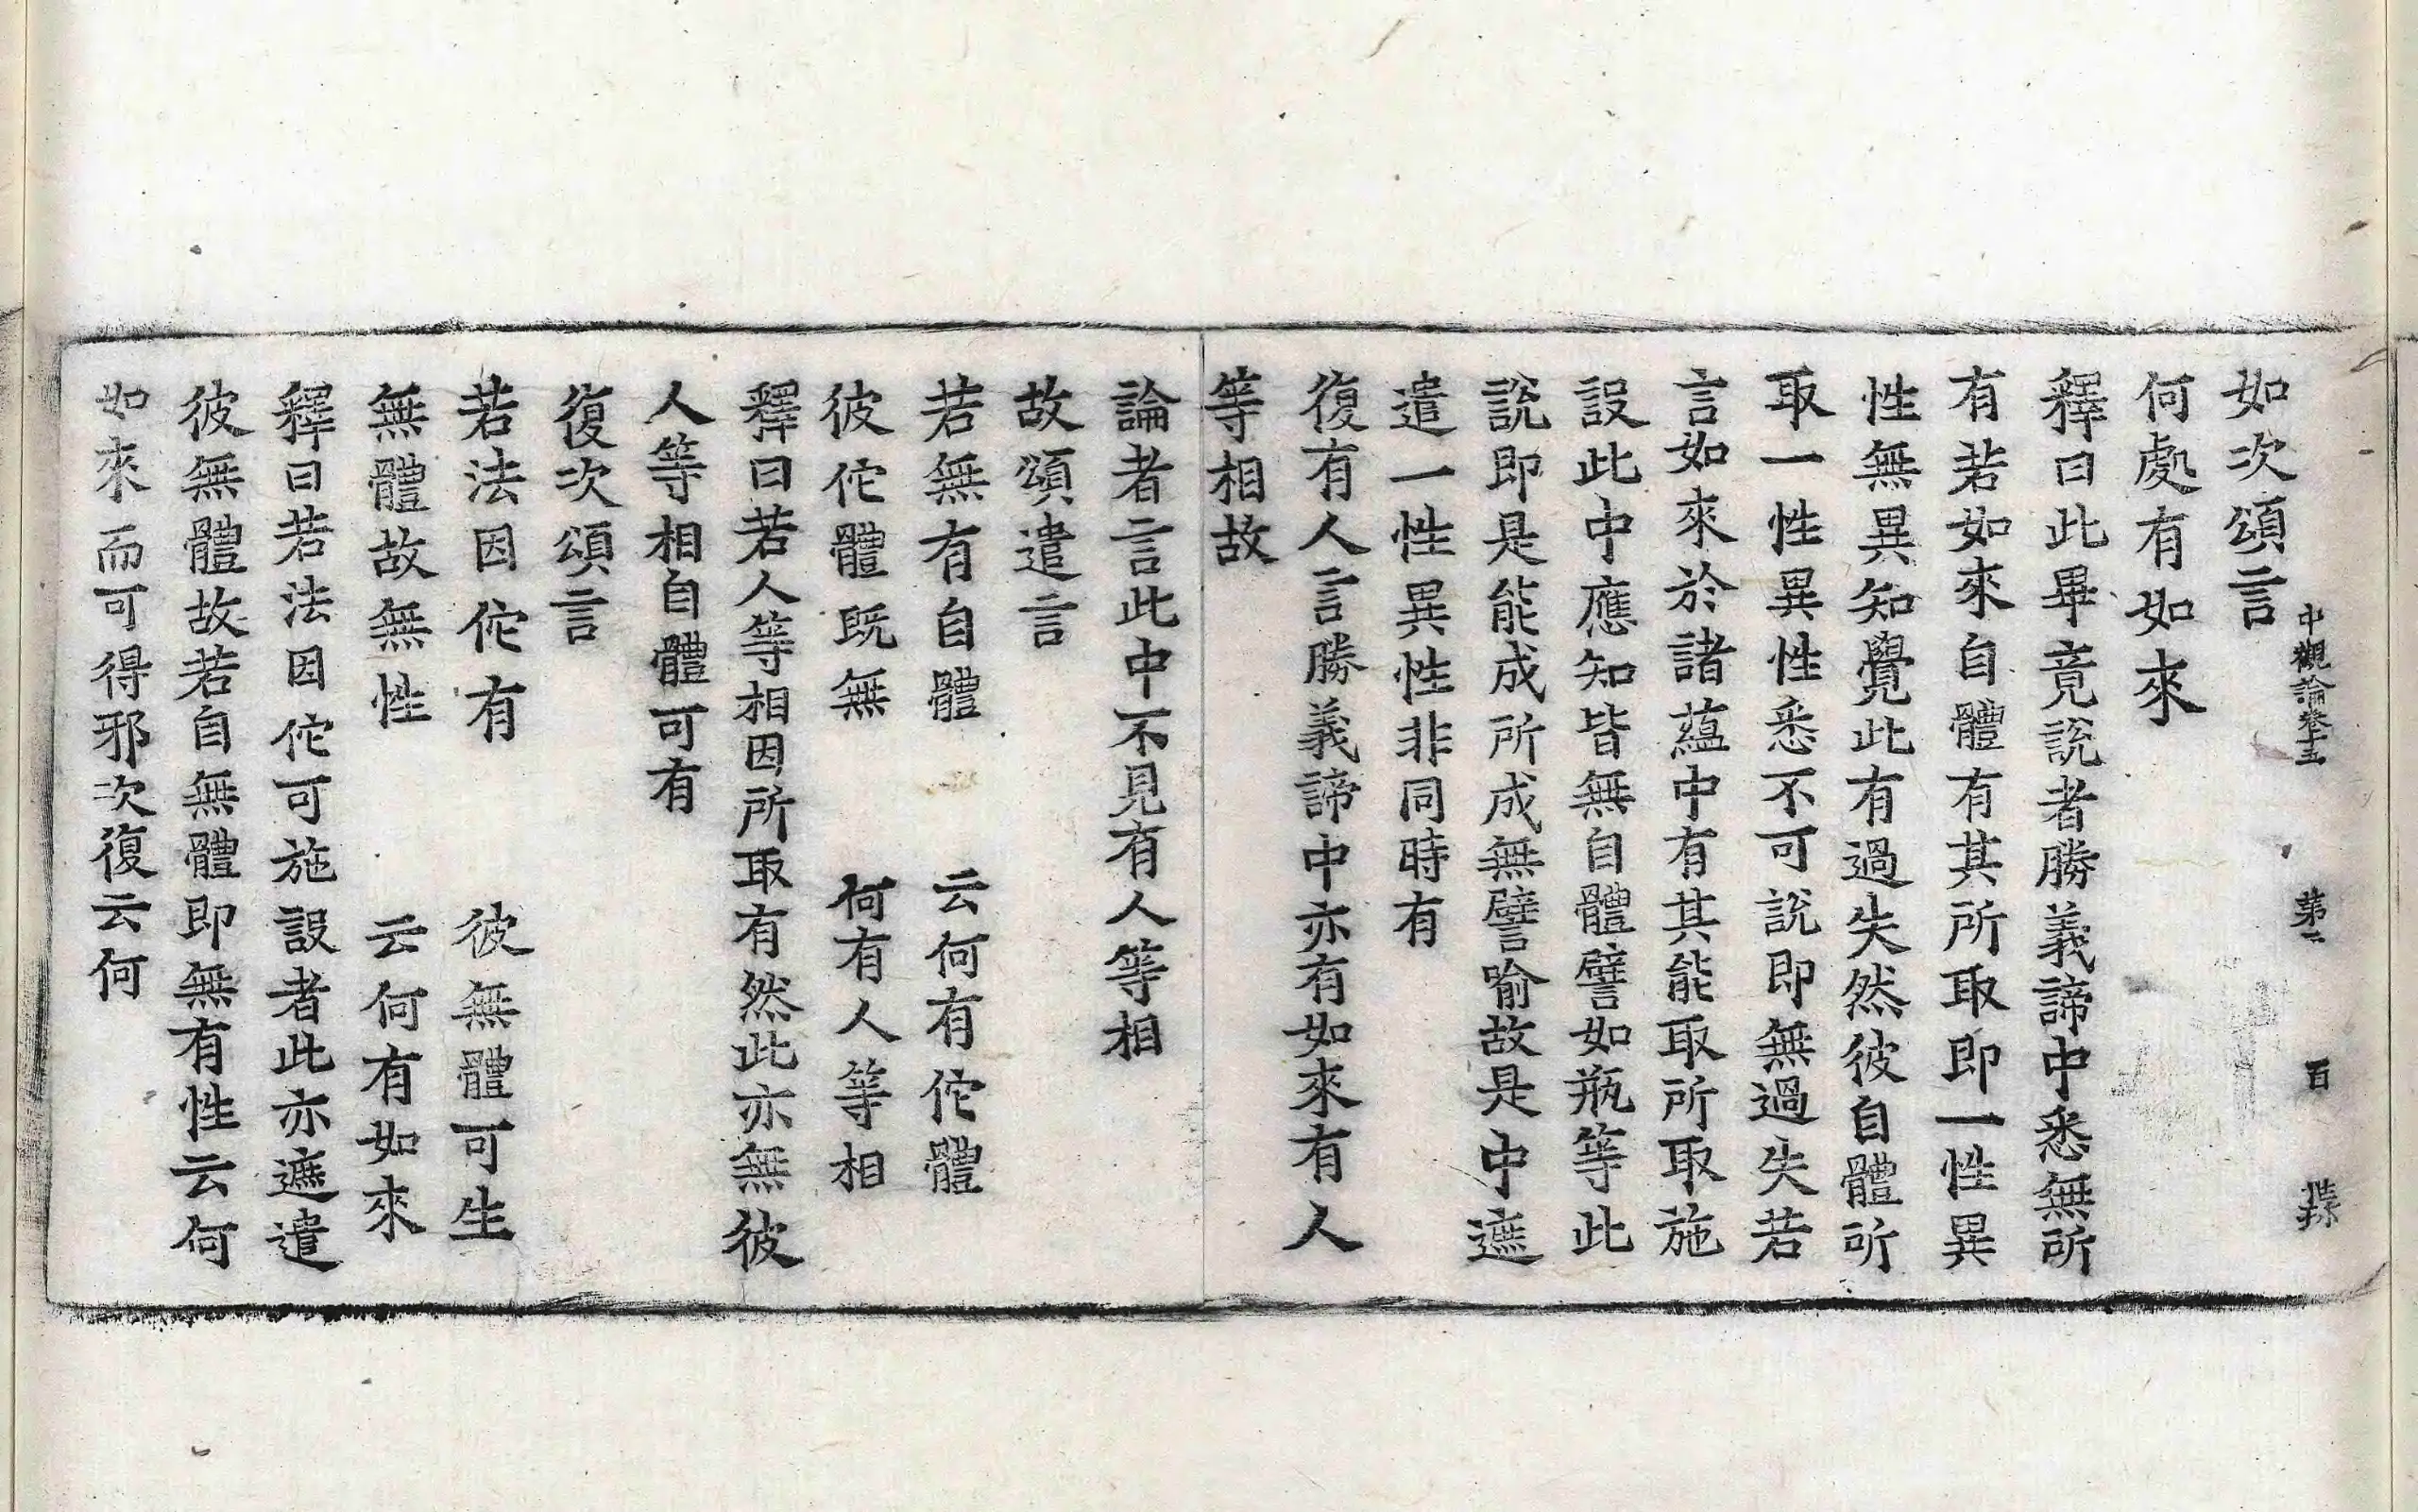 如次頌言
何處有如來
釋曰此畢竟說者勝義諦中悉無所
有若如來自體有其所取即一性異
性無異知覺此有過失然彼自體所
取一性異性悉不可說即無過失若
言如來於諸蘊中有其能取所取施
設此中應知皆無自體譬如瓶等此
說即是能成所成無譬喻故是中遮
遣一性異性非同時有
復有人言勝義諦中亦有如來有人
等相故
論者言此中不見有人等相
故頌遣言
若無有自體　云何有佗體
彼佗體既無　何有人等相
釋曰若人等相因所取有然此亦無彼
人等相自體可有
復次頌言
若法因佗有　彼無體可生
無體故無性　云何有如來
釋曰若法因佗可施設者此亦遮遣
彼無體故若自無體即無有性云何
如來而可得邪次復云何
中觀論卷十五　第二　百